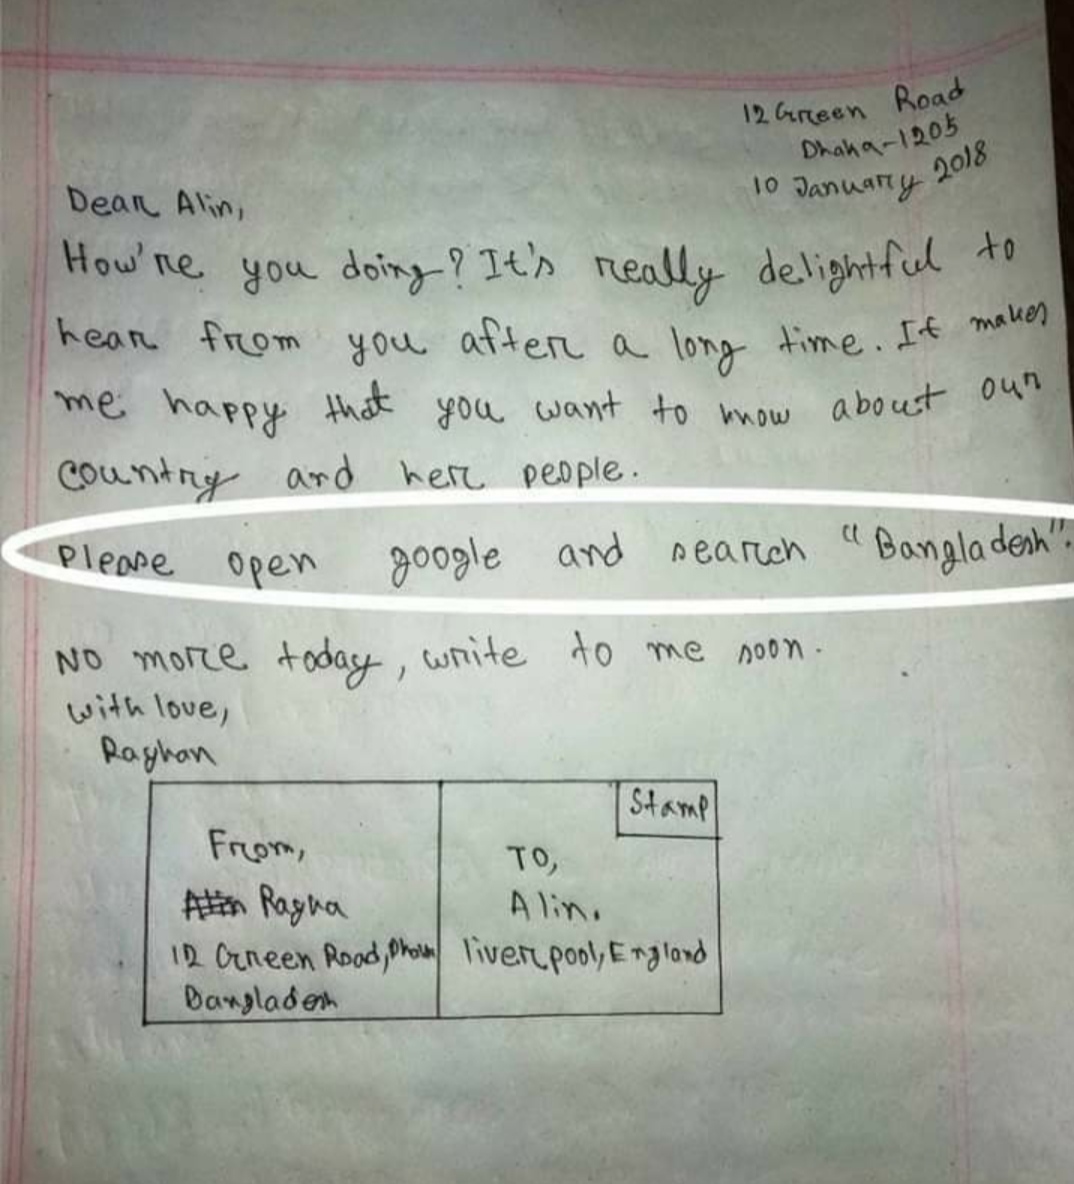 12 Green Road
Dhaka-1205
10 January 2018
Dear Alin,
How're you doing? It's really delightful to
hear from you after a long time. It makes
me happy that you want to know about our
country and her people.
Please open google and search "Bangladesh".
No more today, write to me soon.
with love,
Rayhan
Stamp
From,
Rayha
12 Green Road, Dhaka
Bangladesh
TO,
Alin.
liverpool, England